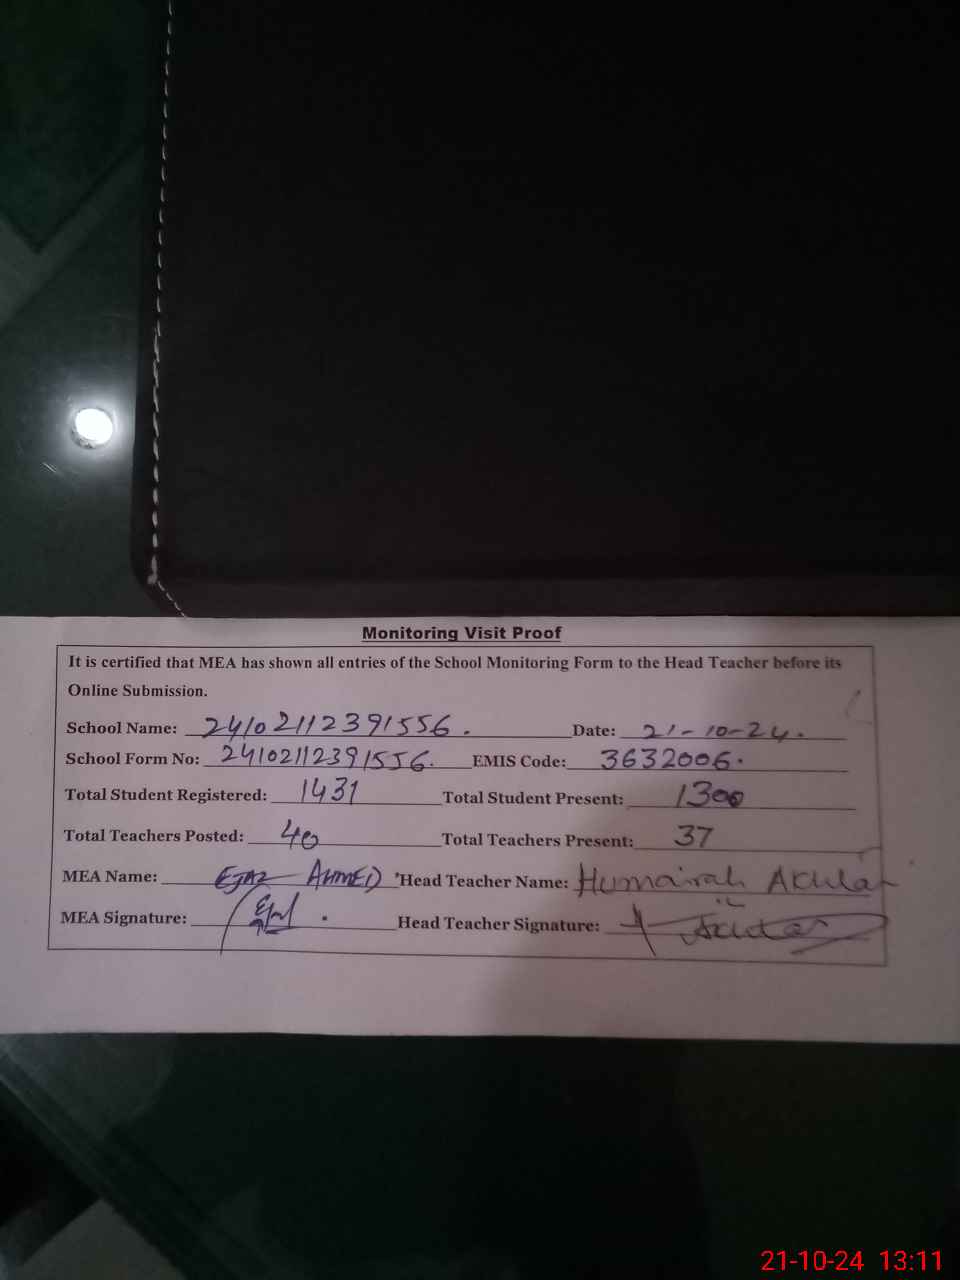 Monitoring Visit Proof
It is certified that MEA has shown all entries of the School Monitoring Form to the Head Teacher before its
Online Submission.
School Name: 24102112391556. Date: 21-10-24.
School Form No: 24102112391556. EMIS Code: 3632006.
Total Student Registered: 1431 Total Student Present: 1300
Total Teachers Posted: 40 Total Teachers Present: 37
MEA Name: EJAZ AHMED Head Teacher Name: Humairah
MEA Signature: Head Teacher Signature:
21-10-24 13:11